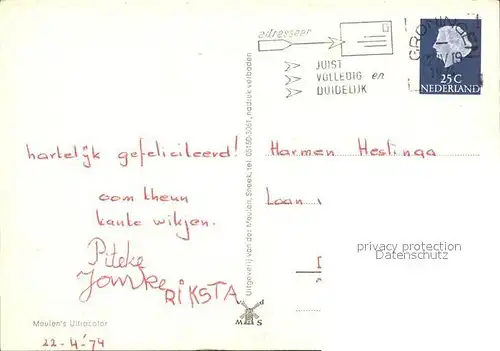 adresseer
JUIST
VOLLEDIG en
DUIDELIJK
GRONINGEN
25 C
NEDERLAND
hartelijk gefeliciteerd!
oom theun
tante wikjen.
Piteke
RIKSTA
Harmen Hestinga
Laan
privacy protection
Datenschutz
Uitgeverij van der Meulen, Sneek, tel. 05150-3061, nadruk verboden
v d
M S
Meulen's Ultracolor
22-4-'74